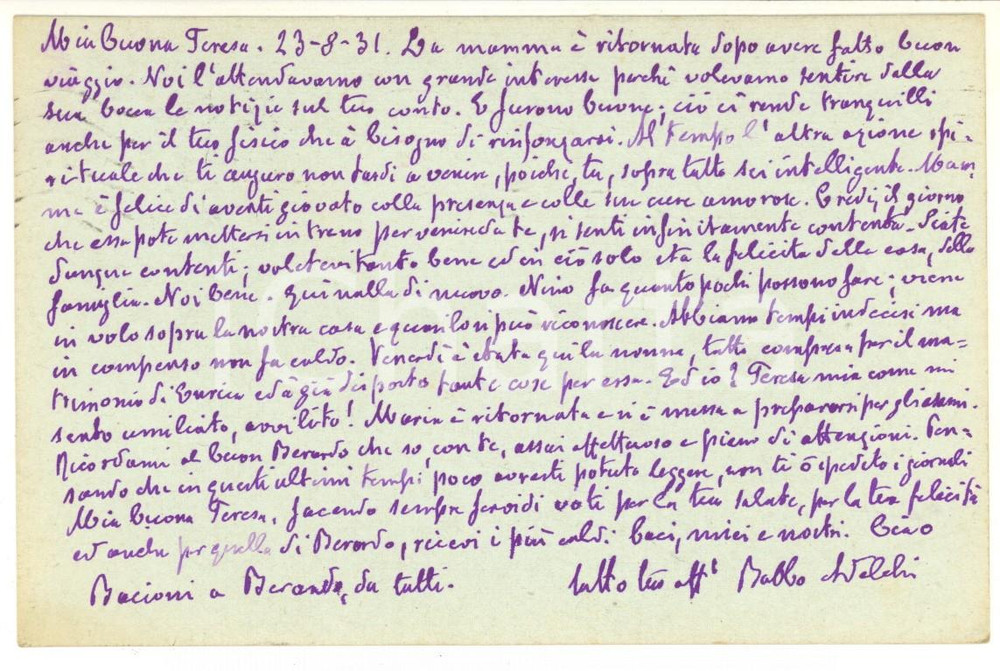 Mia buona Teresa. 23-8-31. La mamma è ritornata dopo avere fatto buon
viaggio. Noi l'attendavamo con grande interesse perchè volevamo sentire dalla
sua bocca le notizie sul tuo conto. E furono buone; ciò ci rende tranquilli
anche per il tuo fisico che à bisogno di rinforzarsi. Al tempo l'altra azione spi-
rituale che ti auguro non tardi a venire, poichè, tu, sopra tutto sei intelligente. Mam-
ma è felice di averti giovato colla presenza e colle sue cure amorose. Credi, il giorno
che essa potè mettersi in treno per venire da te, si sentì infinitamente contenta. Siate
dunque contenti; voletevi tanto bene ed in ciò solo stà la felicità della casa, della
famiglia. Noi bene. Qui nulla di nuovo. Nino fa quanto pochi possono fare; viene
in volo sopra la nostra casa e quasi lo si può riconoscere. Abbiamo tempi indecisi ma
in compenso non fa caldo. Venerdì è stata qui la nonna, tutta compresa per il ma-
trimonio di Eurica ed à già disposto tante cose per essa. Ed io? Teresa mia come mi
sento umiliato, avvilito! Maria è ritornata e si è messa a prepararsi per gli esami.
Ricordami al buon Berardo che so, con te, assai affettuoso e pieno di attenzioni. Pen-
sando che in questi ultimi tempi poco avresti potuto leggere, non ti ò spedito i giornali
Mia buona Teresa, facendo sempre fervidi voti per la tua salute, per la tua felicità
ed anche per quella di Berardo, ricevi i più caldi baci, miei e nostri. Ciao
Bacioni a Berardo, da tutti. tutto tuo aff' Babbo Adelchi